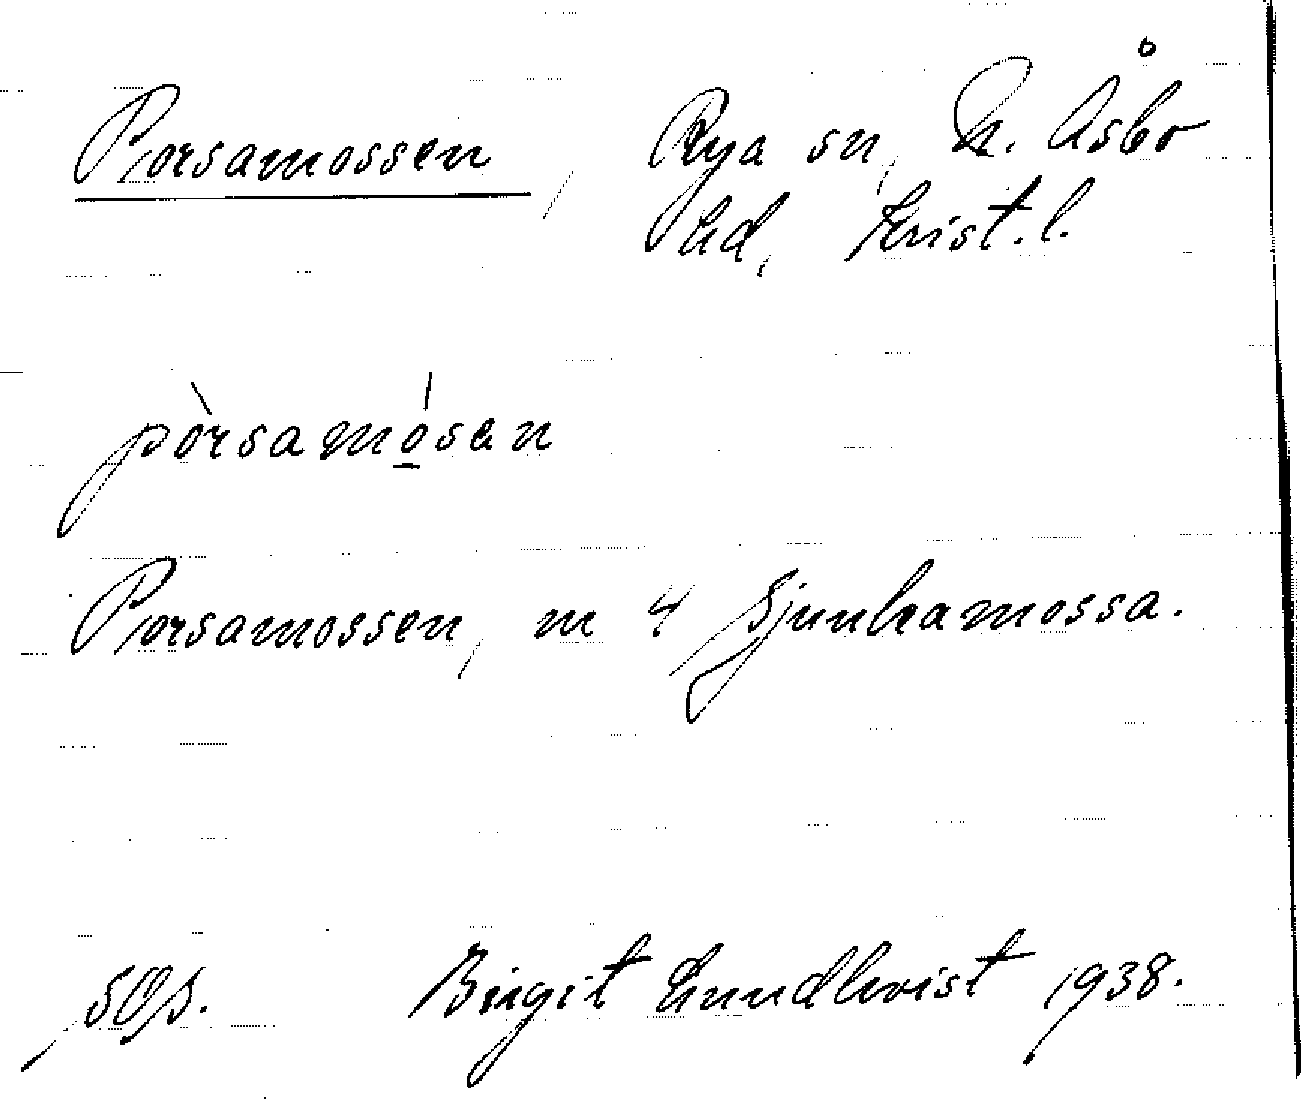 Porsamossen, Rya sn, N. Åsbo
hd, Krist. l.
pòrsamó̠san
Porsamossen, m 4 Sjunkamossa.
Birgit Lundkvist 1938.